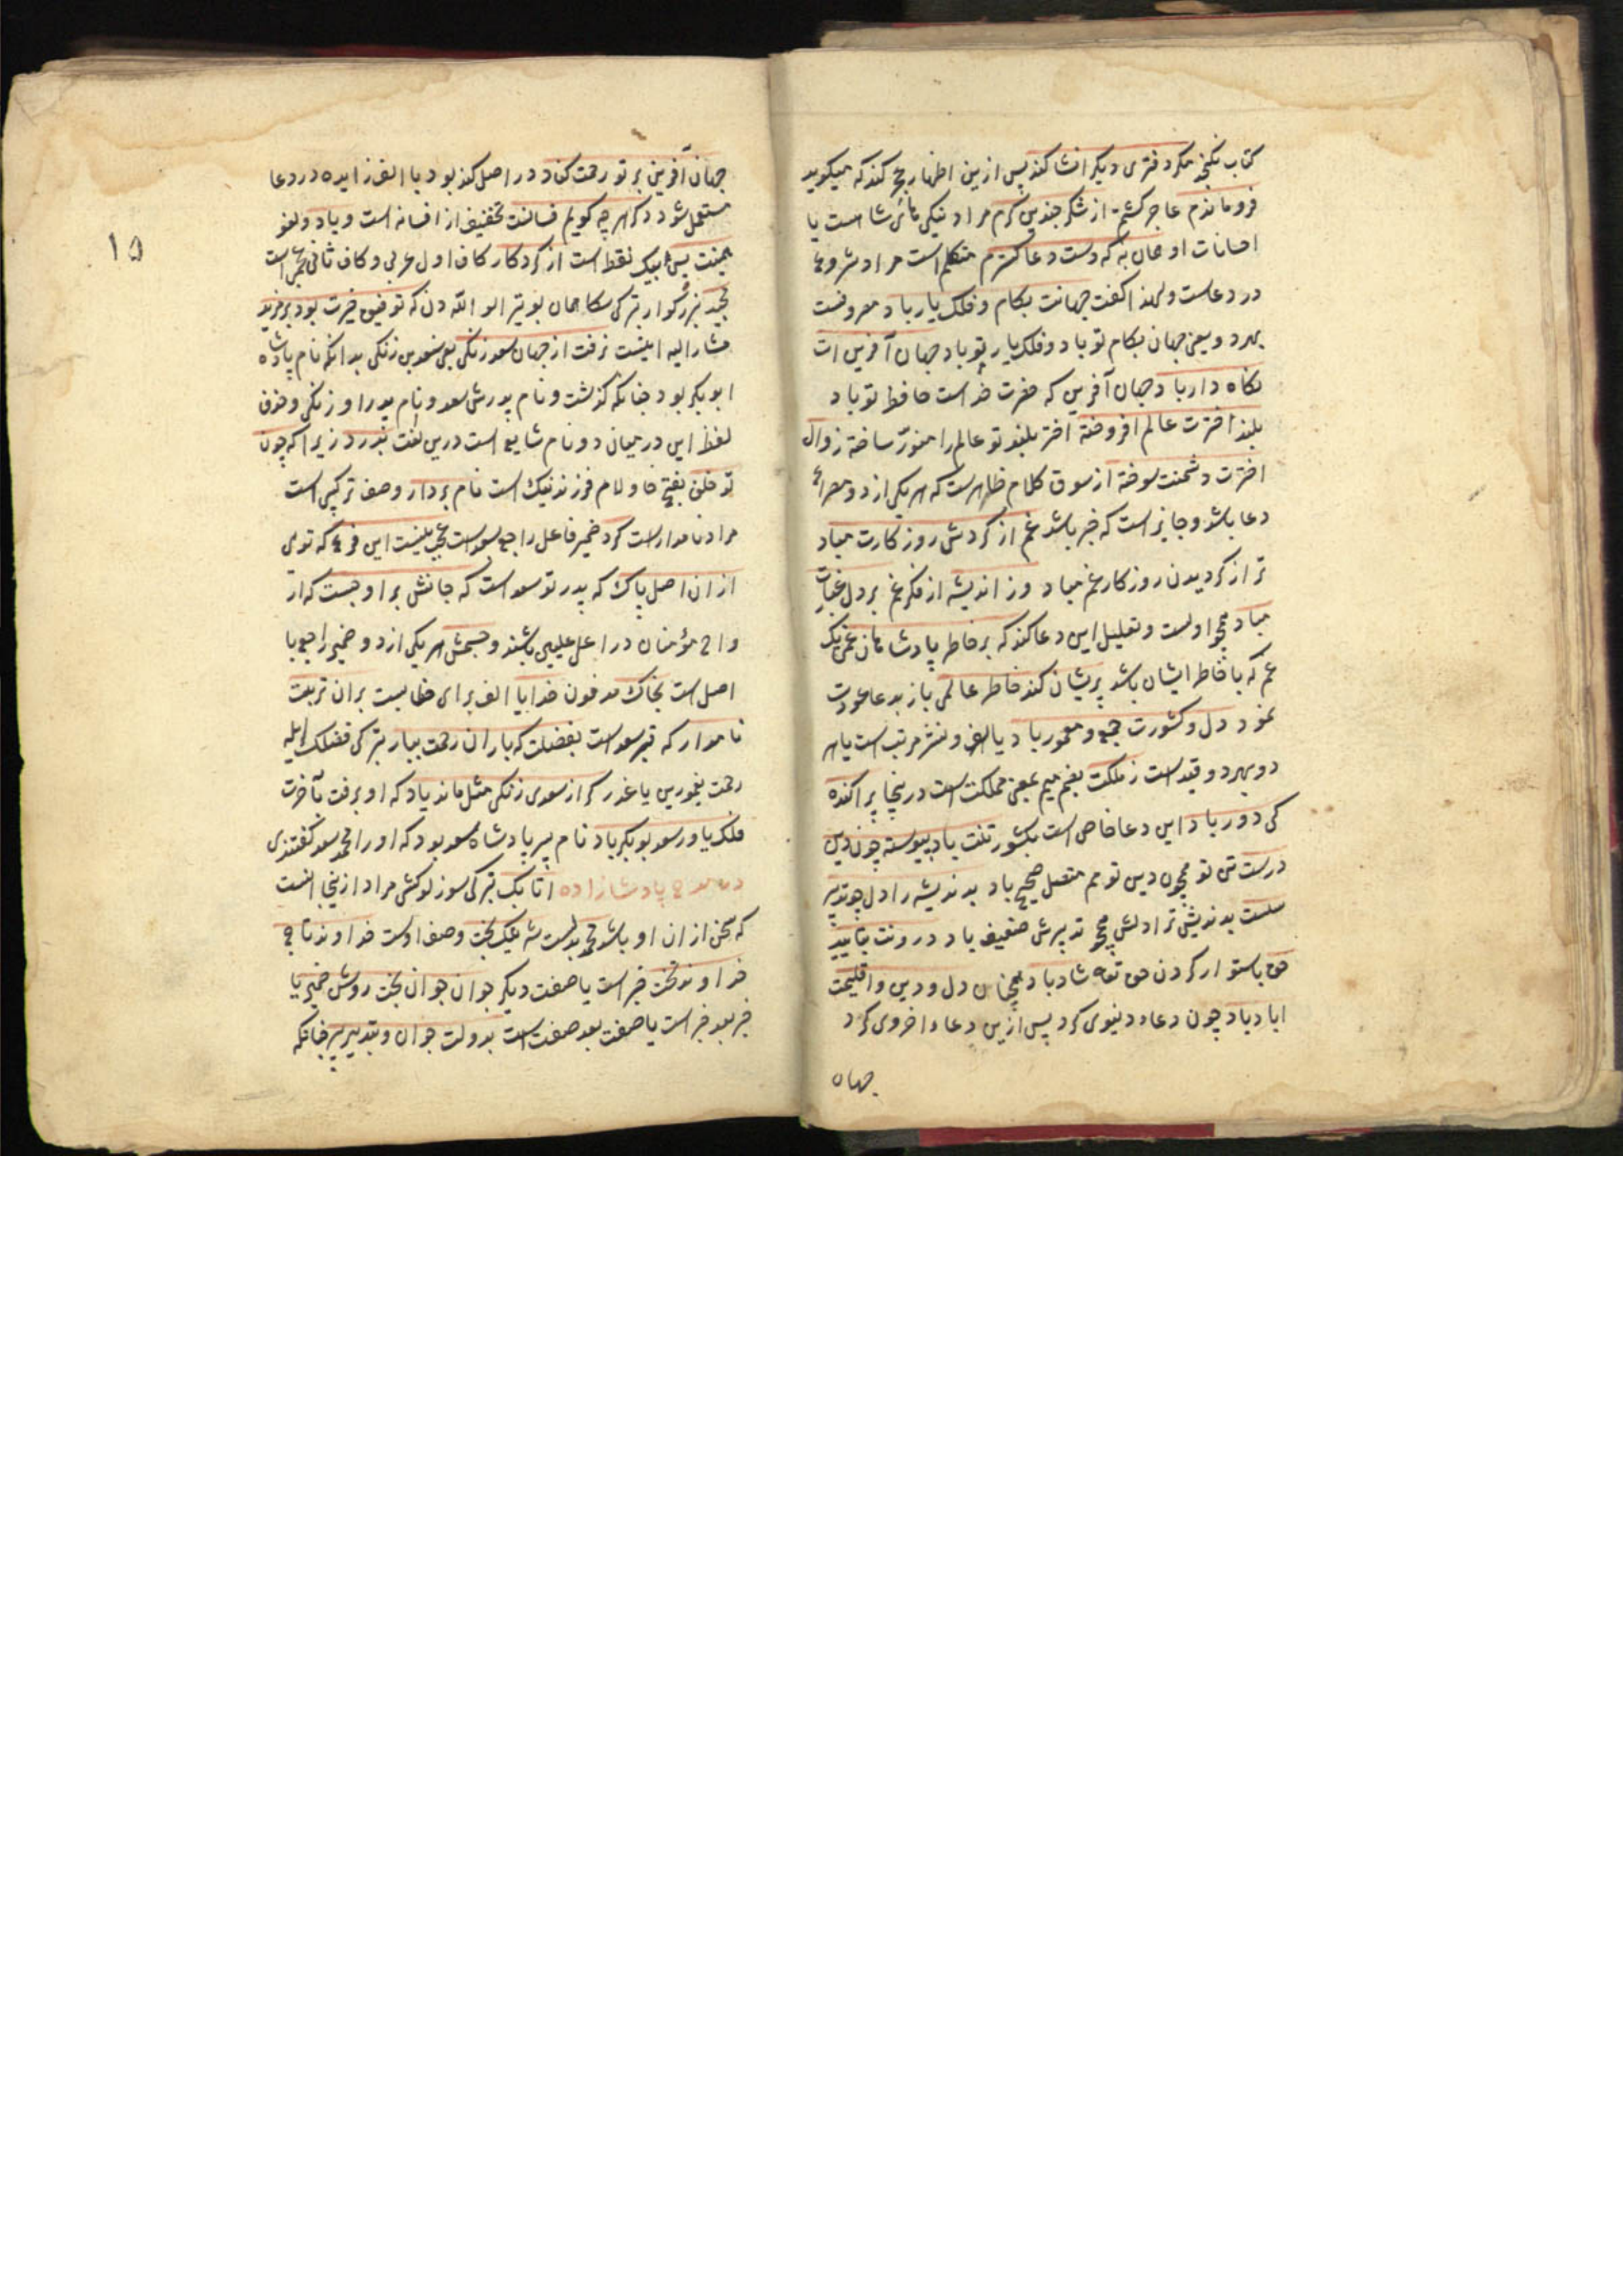 کتاب نکنجد مکر دفتری دیکر انشا کند پس ازین اظهار عجز کند که میکوید
فروماندم عاجز کشتم از شکر چندین کرم مراد نیکی‌های شاهست یا
احسانات او همان به که دست دعا کسترم متکلم است مراد شروع
در دعاست ولهذا کفت جهانت بکام و فلک یار باد معروفست
بهر دو یعنی جهان بکام تو باد و فلک یار تو باد جهان آفرین ات
نکاه دار باد جهان آفرین که حضرت خداست حافظ تو باد
بلند اخترت عالم افروخته اختر بلند تو عالم را منوّر ساخته زوال
اخترت دشمنت سوخته از سوق کلام ظاهرست که هر یکی از دو مصراع
دعا باشد و جایز است که خبر باشد غم از کردش روزکارت مباد
ترا از کردیدن روزکار غم مباد وز اندیشه از فکر غم بر دل غبارت
مباد همچو اولست و تعلیل این دعا کند که بر خاطر پادشاهان غمی یک
غم که با خاطر ایشان باشد پریشان کند خاطر عالمی باز بدعا عودت
نمود دل و کشورت جمع و معمور باد یا لف و نشر مرتب است یا هر
دو بهر دو قیدست ز ملکت بضم میم بمعنی مملکت است درینجا پراکنده
کی دور باد این دعا خاص است بکشور تنت باد پیوسته چون دین
درست تن تو همچون دین تو هم متصل صحیح باد بد اندیشه را دل چو تدبیر
سست بد اندیش ترا دلش همچو تدبیرش ضعیف باد درونت بتأیید
حق باستوار کردن حق تعه شاد باد همچنان دل و دین و اقلیمت
اباد باد چون دعاء دنیوی کرد پس ازین دعاء اخروی کرد
جهان
١٥
جهان آفرین بر تو رحمت کناد در اصل کند بود با الف زایده در دعا
مستعمل شود دکر هر چه کویم فسانست تخفیف از افسانه است و باد ولغو
همینت بس ایبک نقط است از کردکار کاف اول عربی و کاف ثانی عجمی است
مجید بزرکوار ترکی همان بو یتر الو الله دن که توفیق خیرت بود بر مزید
مشار الیه اینست نرفت از جهان سعد زنکی یعنی سعد بن زنکی بدانکه نام پادشاه
ابوبکر بود چنانکه کذشت و نام پدرش سعد و نام پدر او زنکی وحذف
لفظ ابن در میان دو نام شایع است درین لغت بدرد زیرا که چون
تو خلف بفتح خا و لام فرزند نیک است نام بردار وصف ترکیبی است
مراد نامدارست کرد ضمیر فاعل راجع بسعد است عجب نیست این فرع که توی
از ان اصل پاک که پدر تو سعد است که جانش بر اوجست که ار
واح مؤمنان در اعلی علیین باشند و جسمش هر یکی از دو ضمیر راجع با
اصل است بخاک مدفون خدایا الف برای خطابست بران تربت
نامدار که قبر سعد است بفضلت که باران رحمت ببار ترکی فضلک ایله
رحمت یغمورین یاغدر کر از سعدی زنکی مثل ماند یاد که او برفت بآخرت
فلک یاور سعد بوبکر باد نام پسر پادشاه سعد بود که او را محمد سعد کفتندی
پادشازاده اتابک ترکی سوزلوکشی مراد ازینجا انست
که سخن از ان او باشد محمد بدلست شه نیک بخت وصف اوست خداوند تاج
خداوند تخت خبر است یا صفت دیکر جوان جوان بخت روشن ضمیر یا
خبر بعد خبر است یا صفت بعد صفت است بدولت جوان و بتدبیر پیر چنانکه